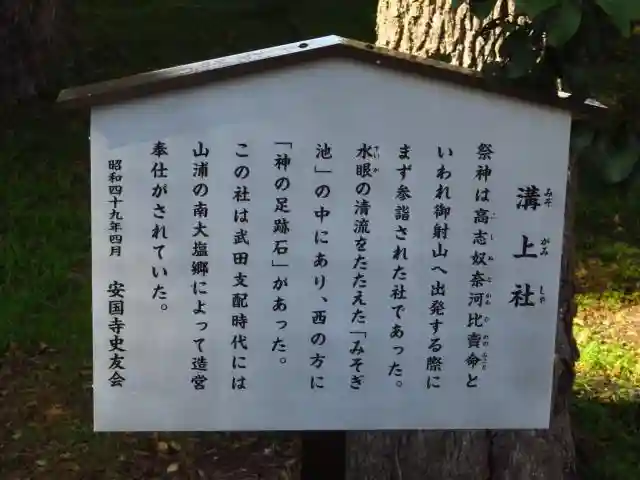 溝上社
祭神は高志奴奈河比賣命と
いわれ御射山へ出発する際に
まず参詣された社であった。
水眼の清流をたたえた「みそぎ
池」の中にあり、西の方に
「神の足跡石」があった。
この社は武田支配時代には
山浦の南大塩郷によって造営
奉仕がされていた。
昭和四十九年四月 安国寺史友会